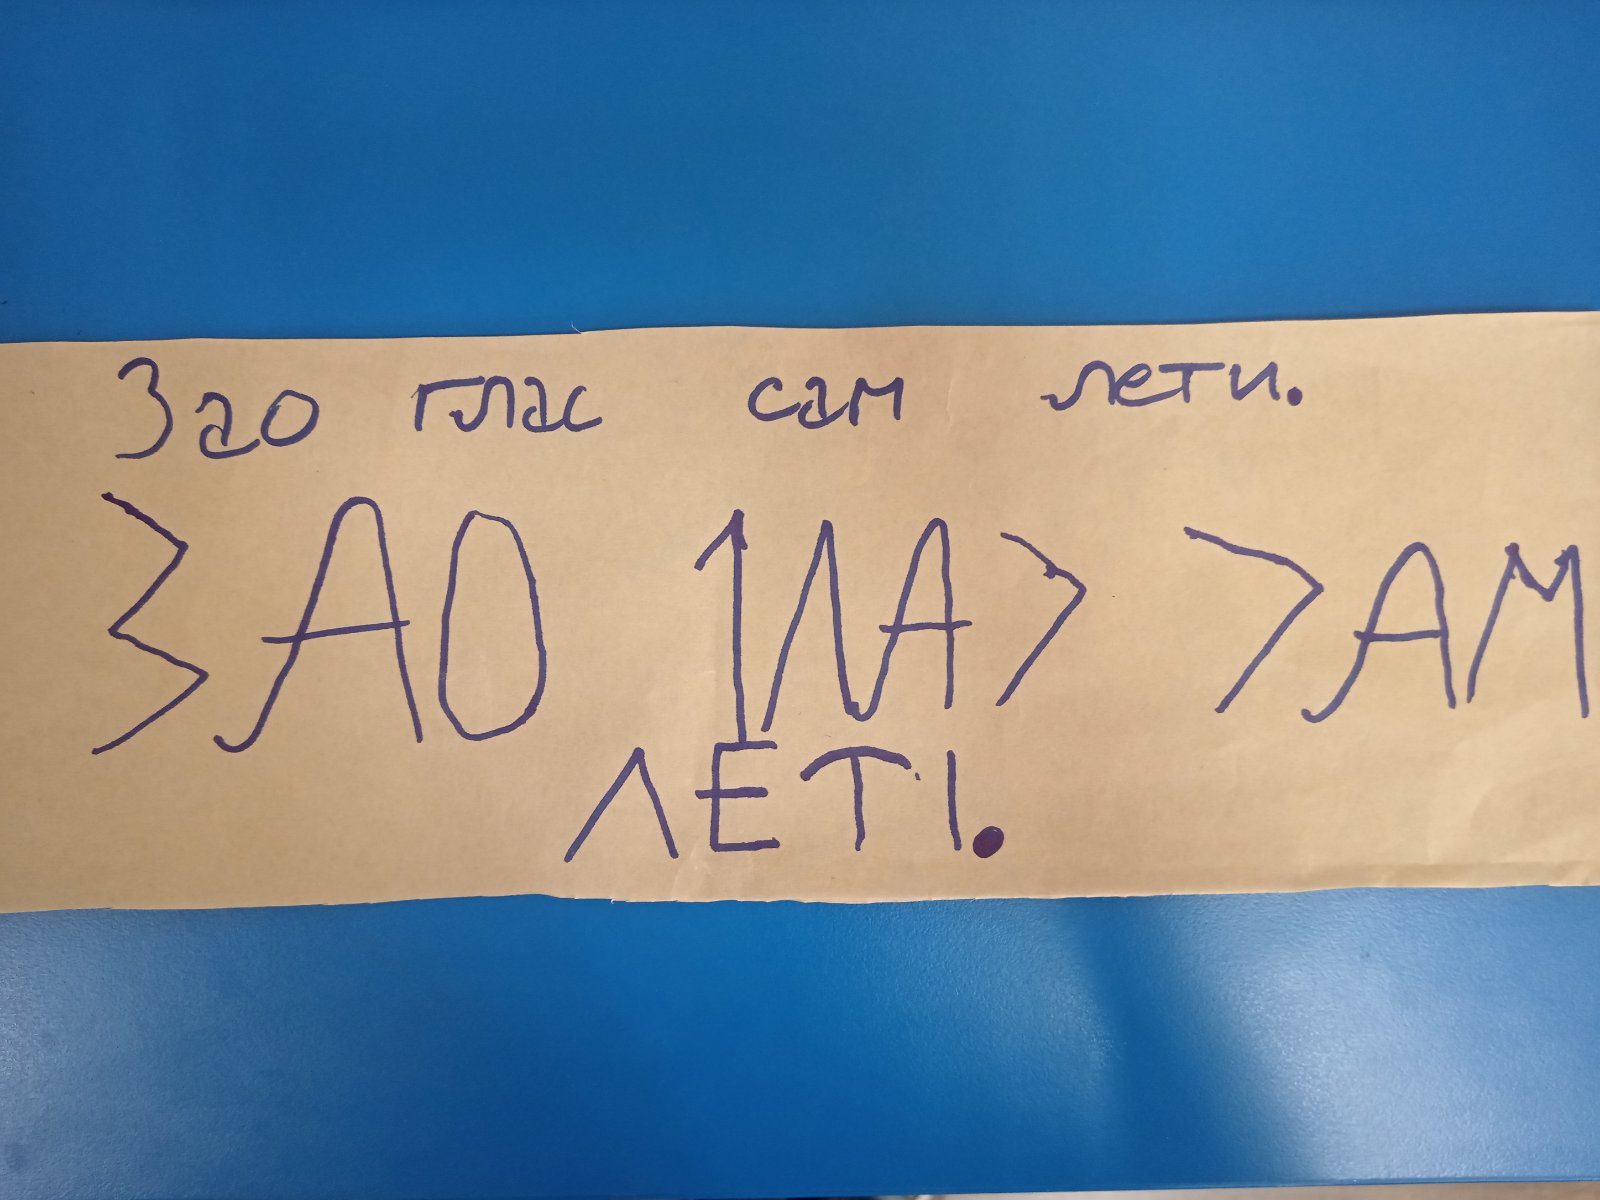 Зао глас сам лети.
ЗАО ГЛАС САМ
ЛЕТІ.